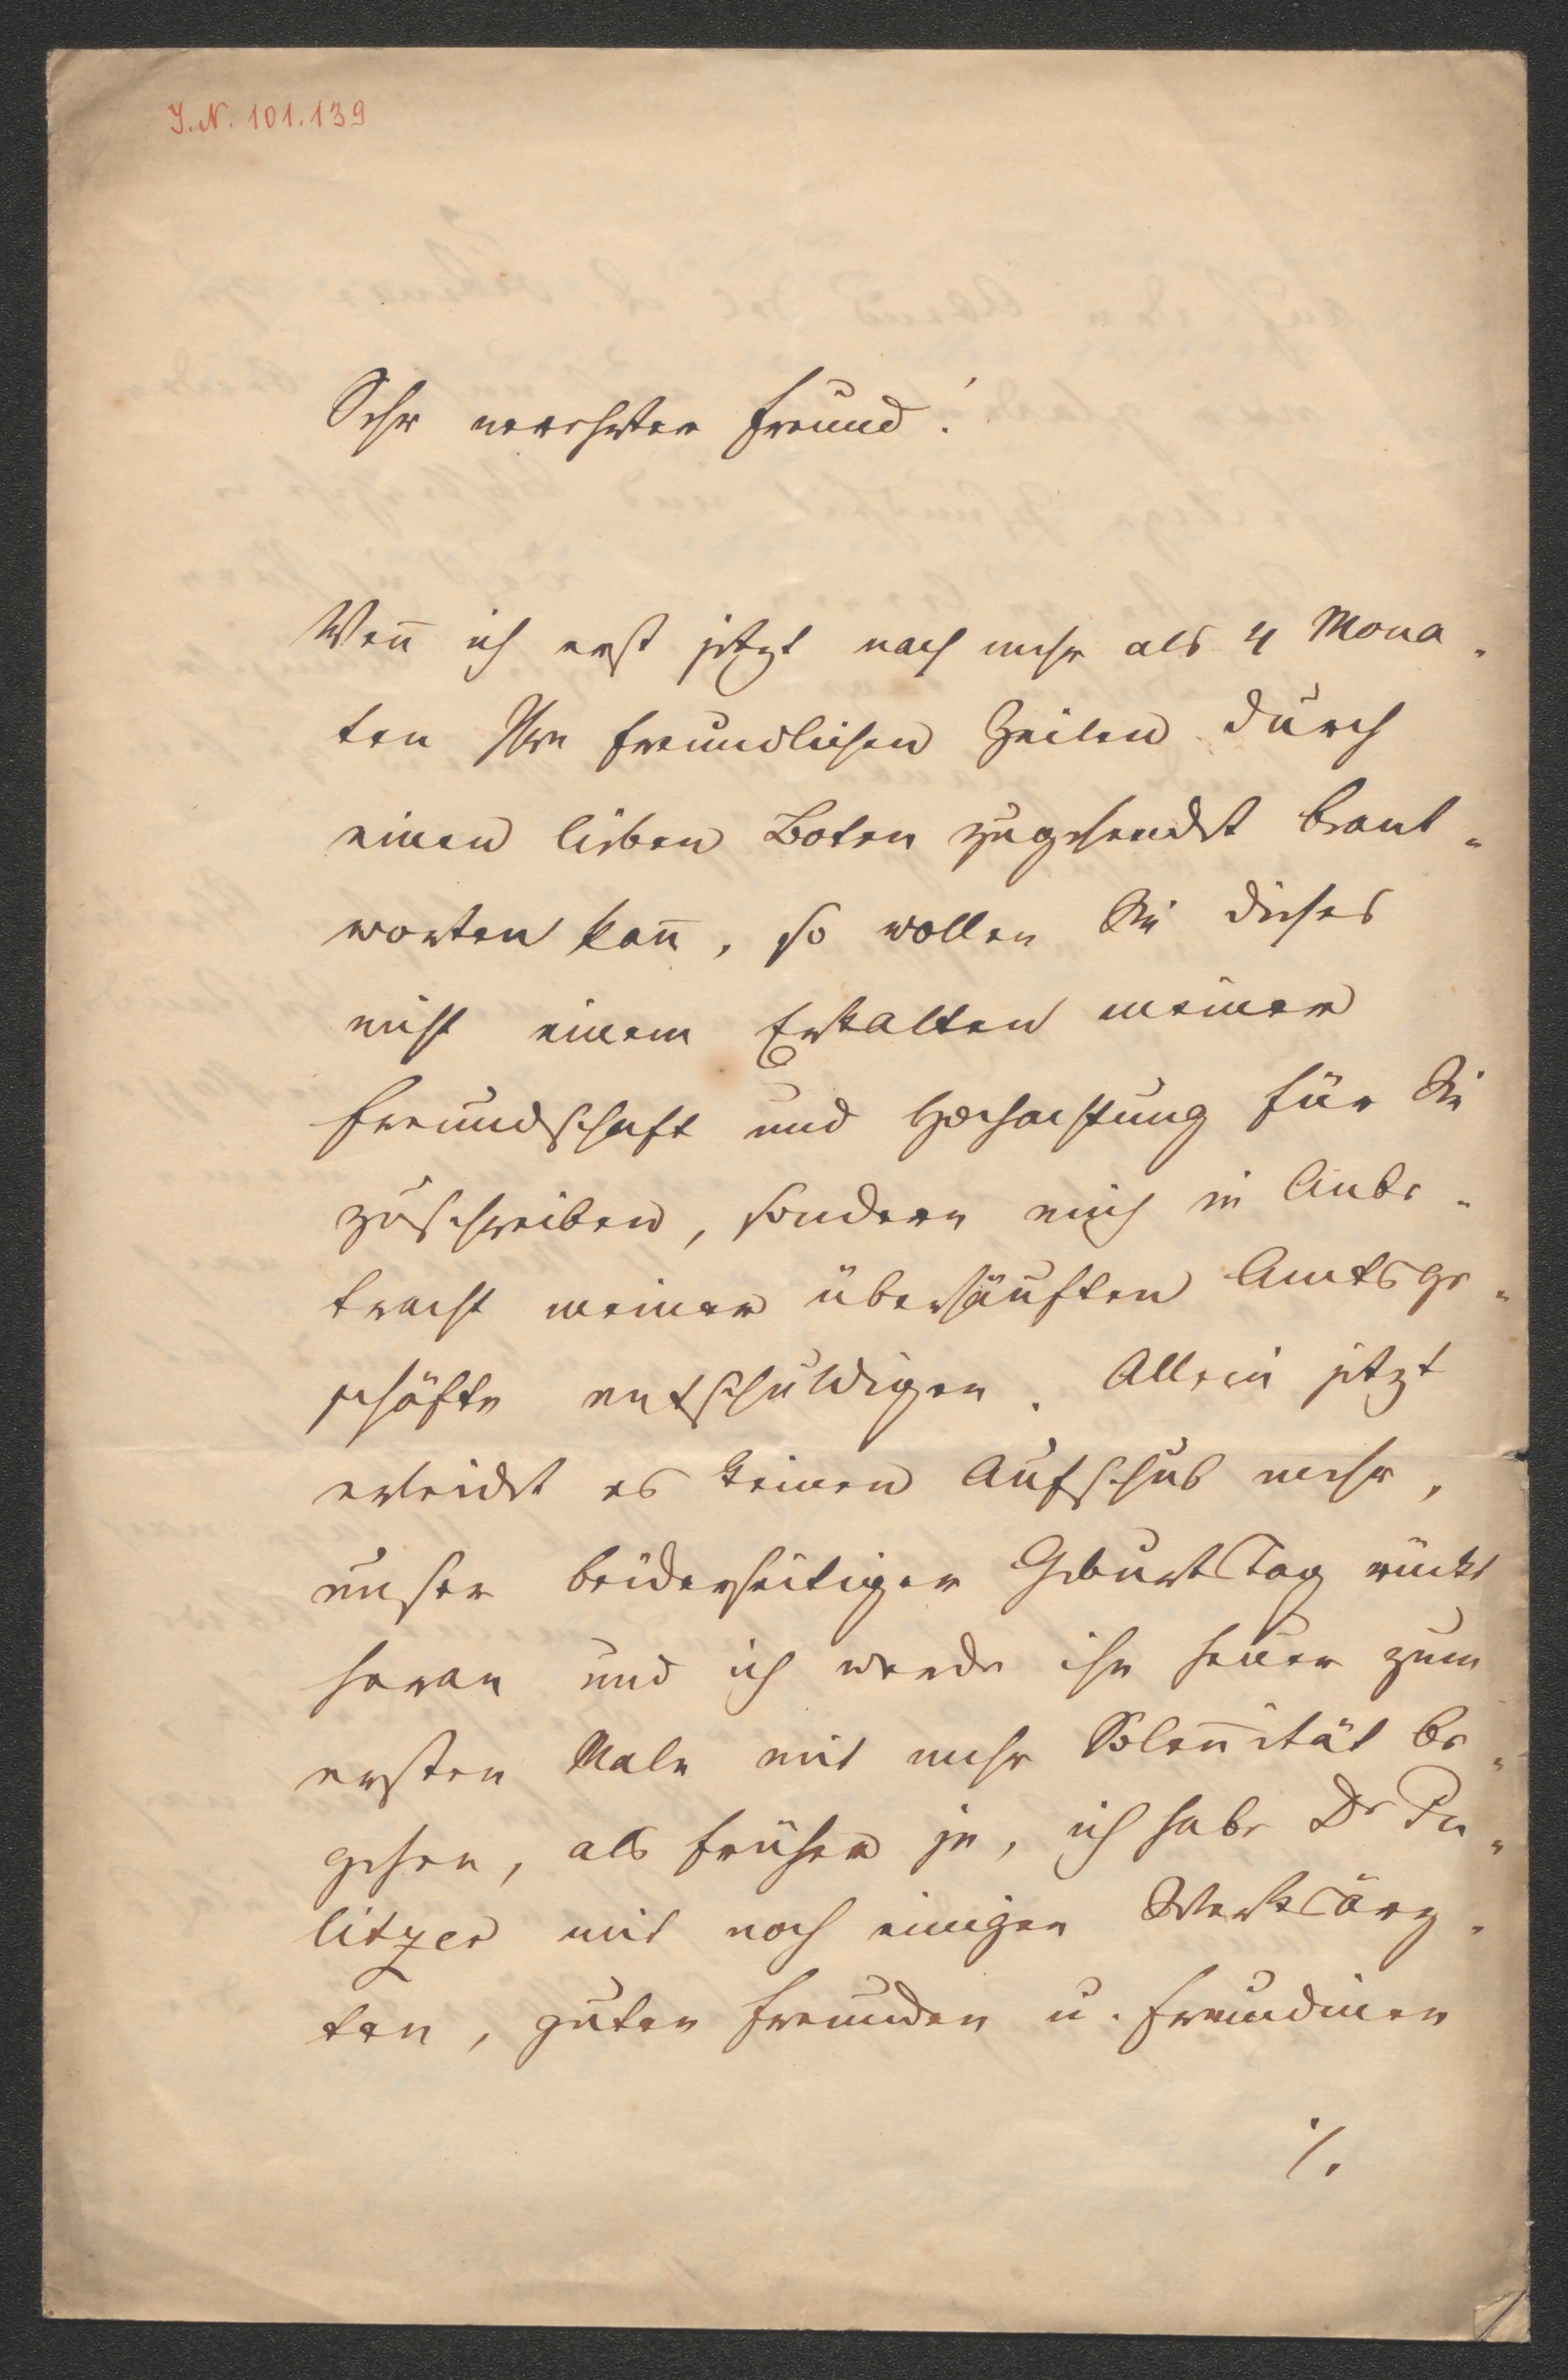 J.N. 101.139
Sehr verehrter Freund!
Wen̄ ich erst jetzt nach mehr als 4 Mona-
ten Ihre freundlichen Zeilen durch
einen lieben Boten zugesendet beant-
worten kan̄, so wollen Sie dieses
nicht einem Erkalten meiner
Freundschaft und Hochachtung für Sie
zuschreiben, sondern mich in Anbe-
tracht meiner überhäuften Amtsge-
schäfte entschuldigen. Allein jetzt
erleidet es keinen Aufschub mehr,
unser beiderseitiger Geburtstag rückt
heran und ich werde ihn heuer zum
ersten Male mit mehr Solen̄ität be-
gehen, als früher je, ich habe Dr Pu-
litzer mit noch einigen Werksärz-
ten, guten Freunden u. Freundinen
./.